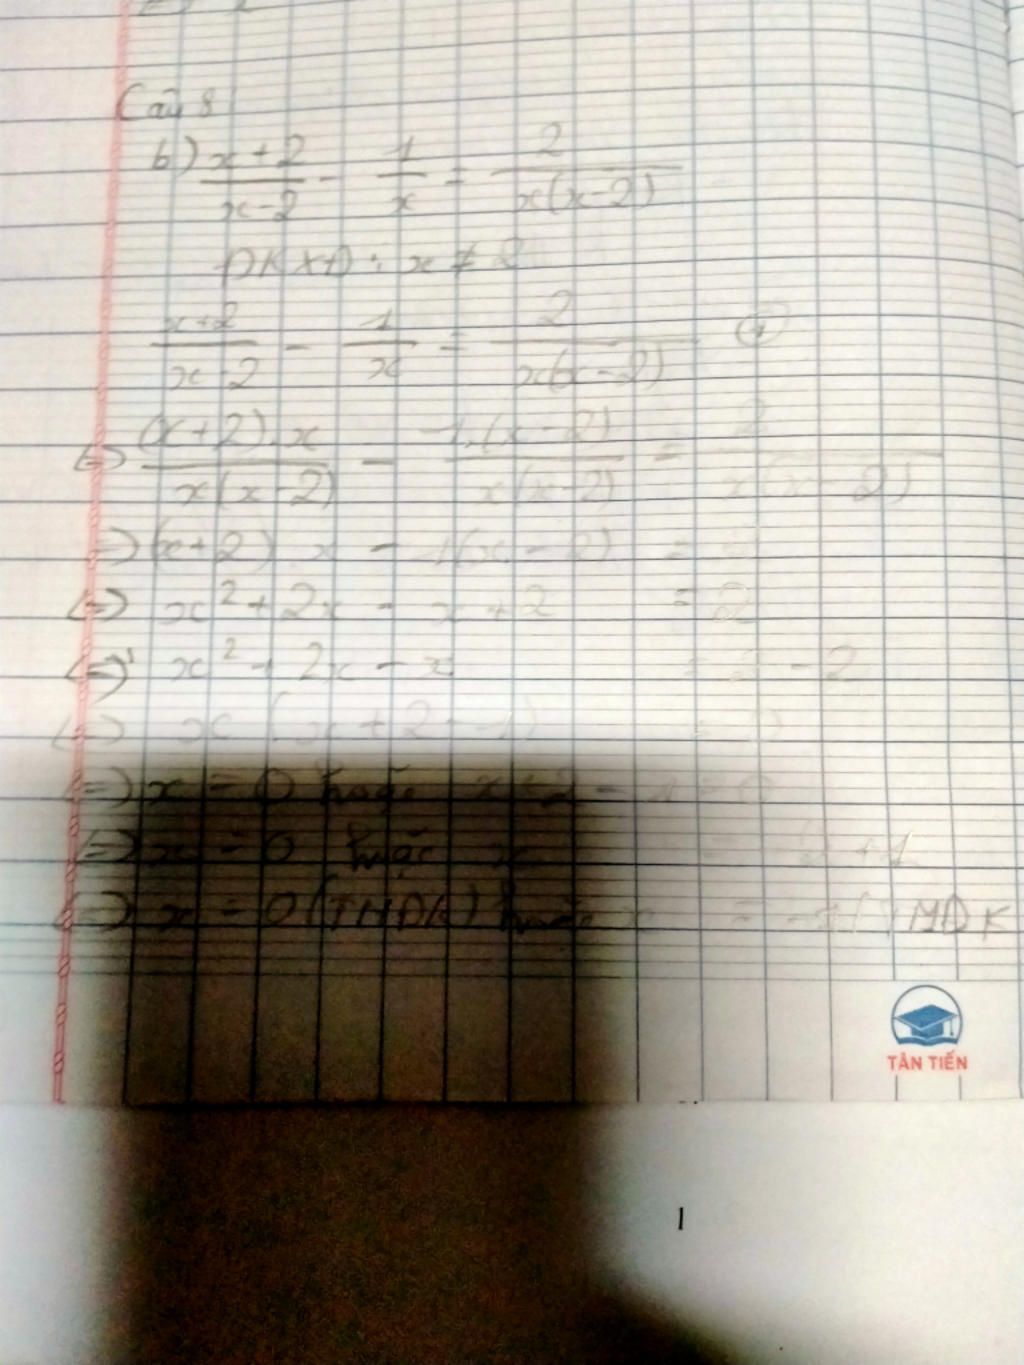 Câu 8
b) \frac{x+2}{x-2} - \frac{1}{x} = \frac{2}{x(x-2)}
ĐKXĐ: x ≠ 2
\frac{x+2}{x-2} - \frac{1}{x} = \frac{2}{x(x-2)}
(=) \frac{(x+2).x}{x(x-2)} - \frac{1.(x-2)}{x(x-2)} = \frac{2}{x(x-2)}
=) (x+2) x - 1(x-2) = 2
(=) x² + 2x - x + 2 = 2
(=) x² + 2x - x = 2 - 2
(=) x (x+2-1) = 0
(=) x = 0 hoặc x+2-1 = 0
(=) x = 0 hoặc x = -2+1
(=) x = 0 (TMĐK) hoặc x = -1 (TMĐK
TÂN TIẾN